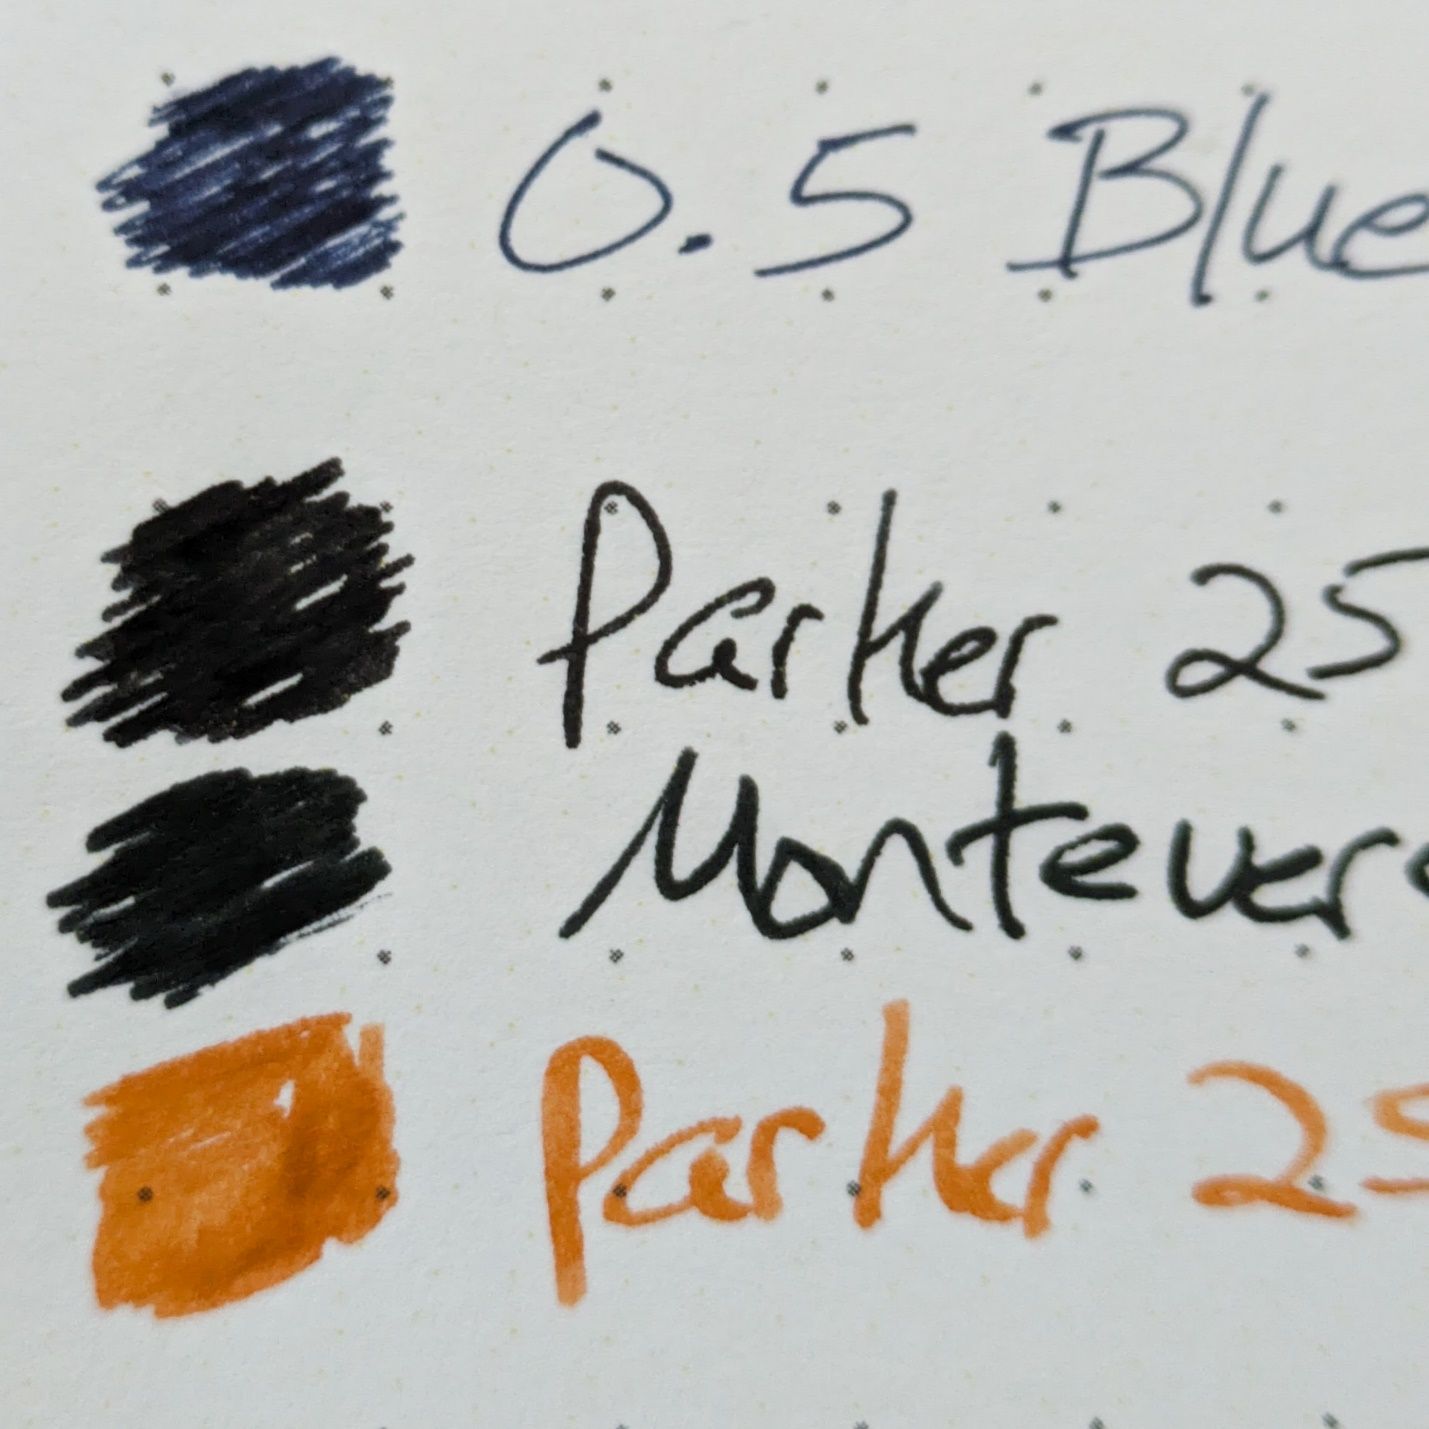 0.5 Blue
Parker 25
Montever
Parker 25